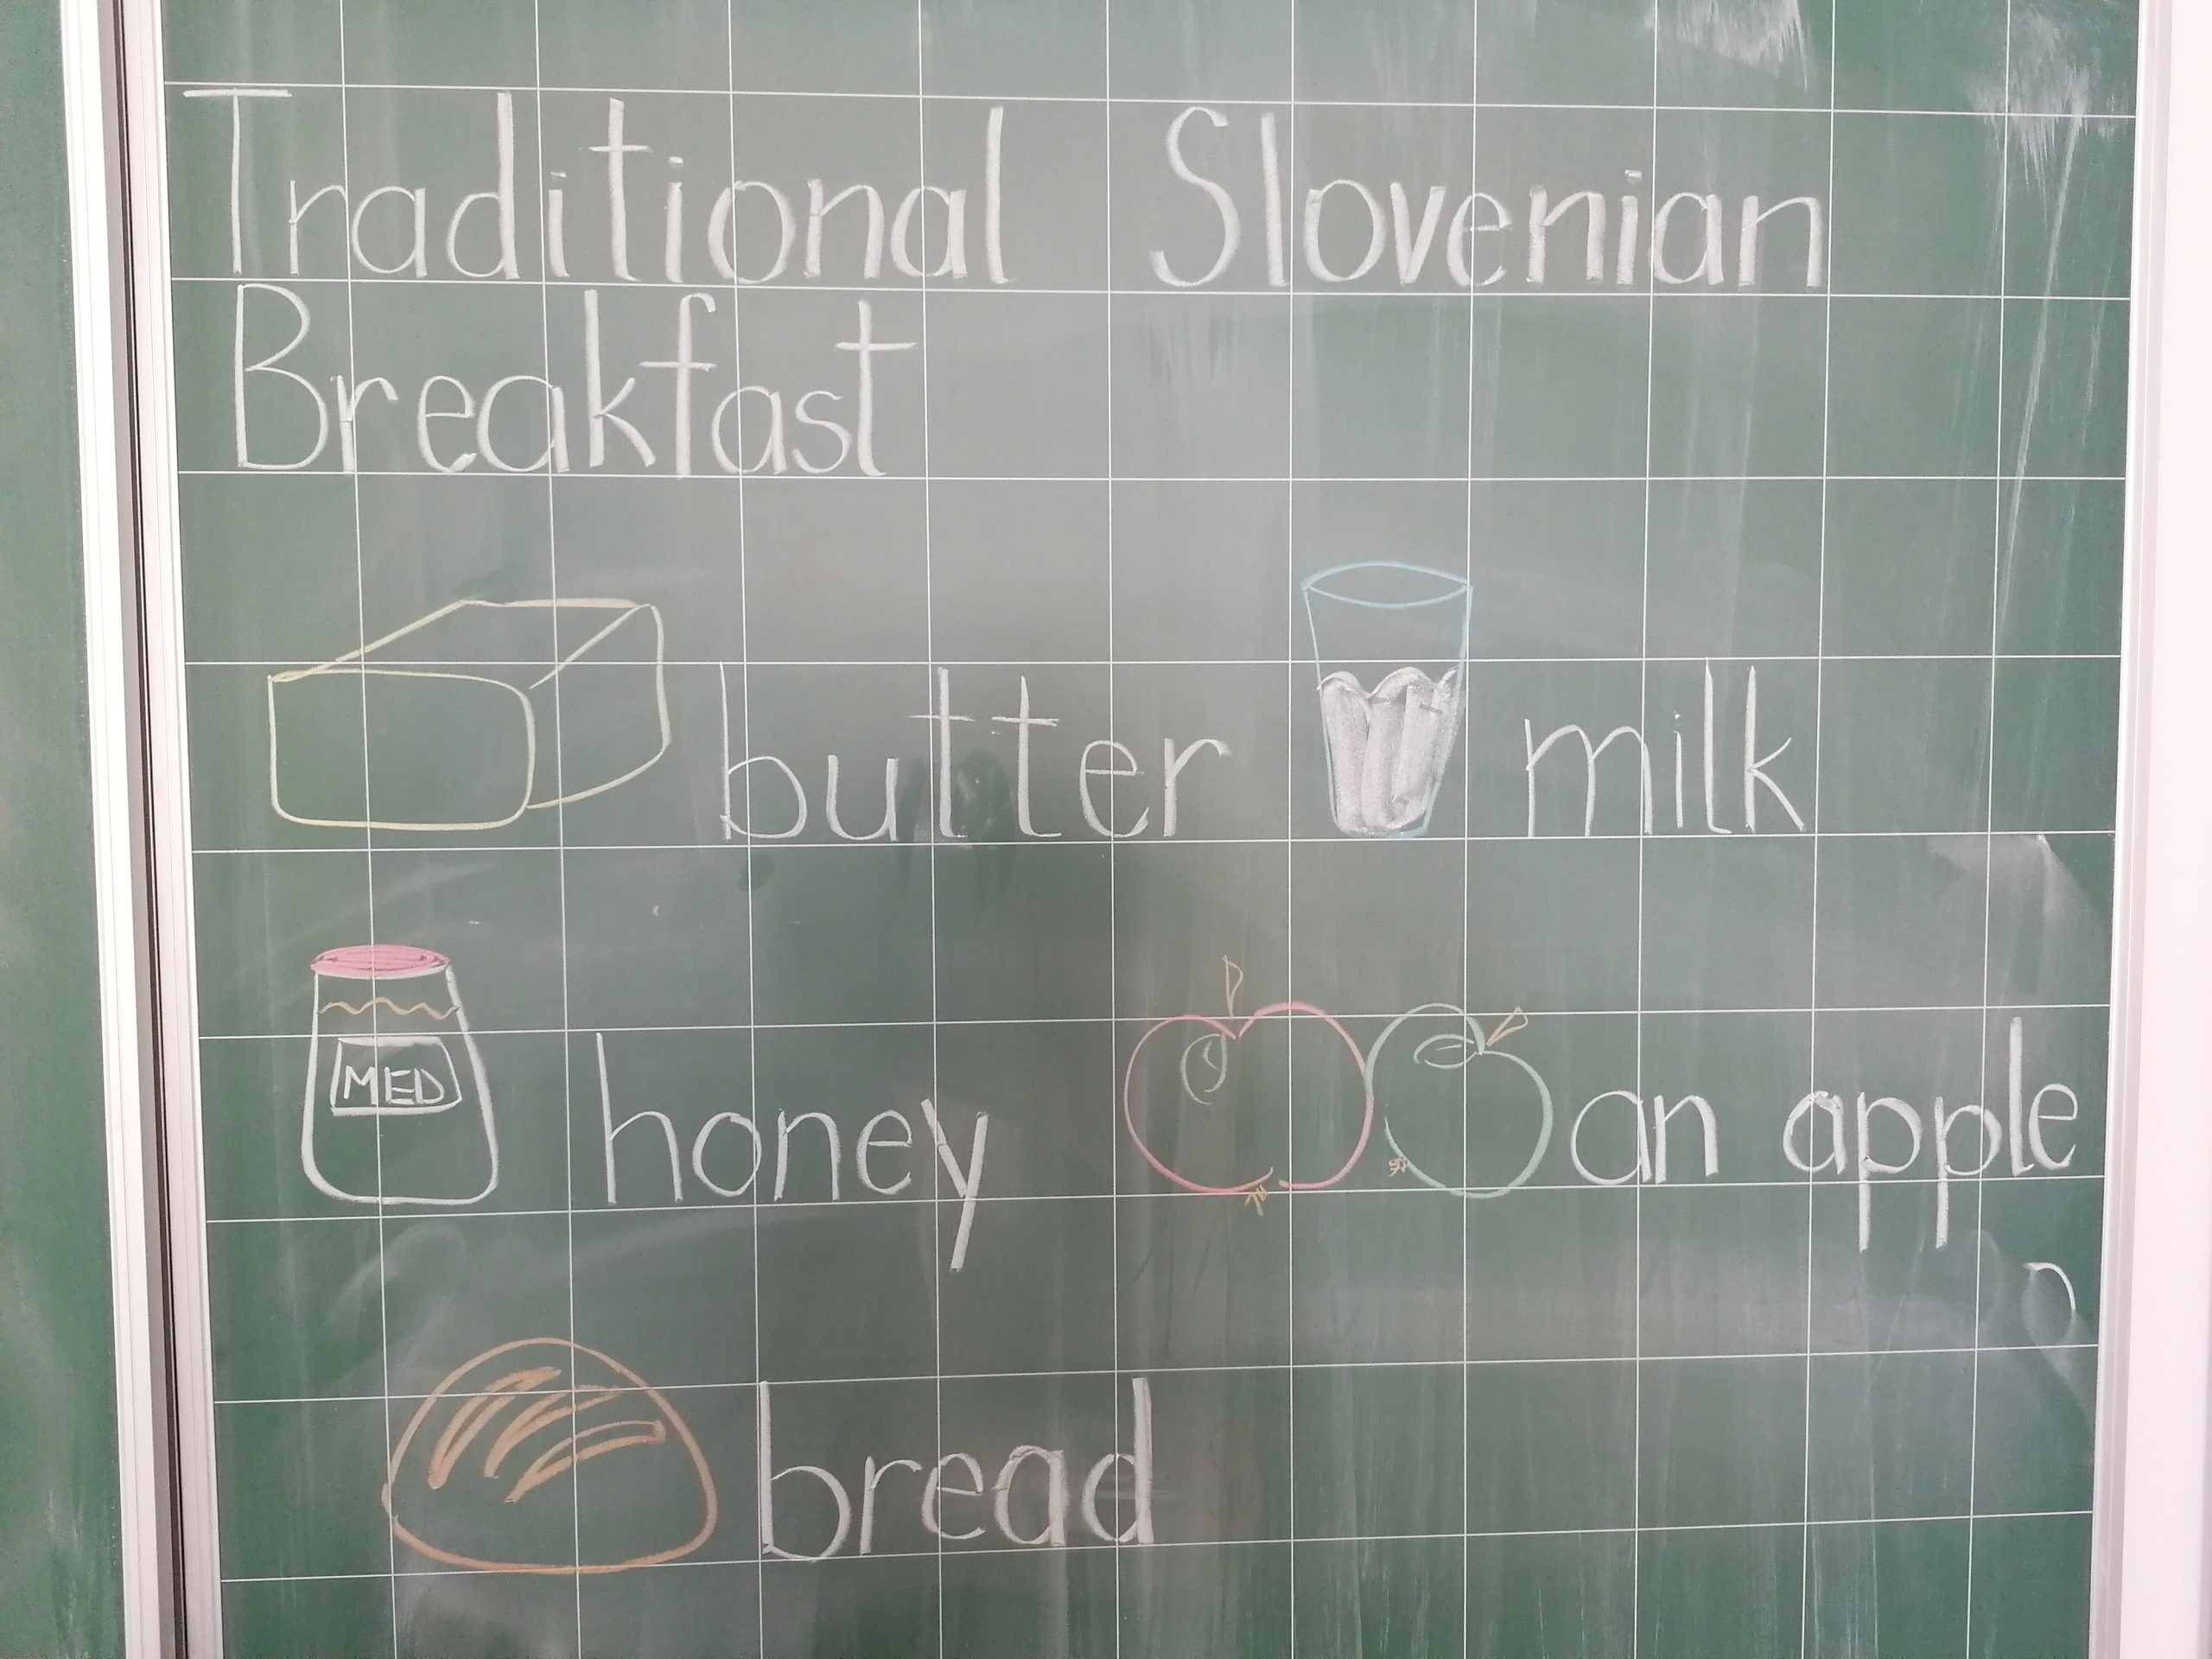 Traditional Slovenian
Breakfast
butter milk
MED
honey an apple
bread